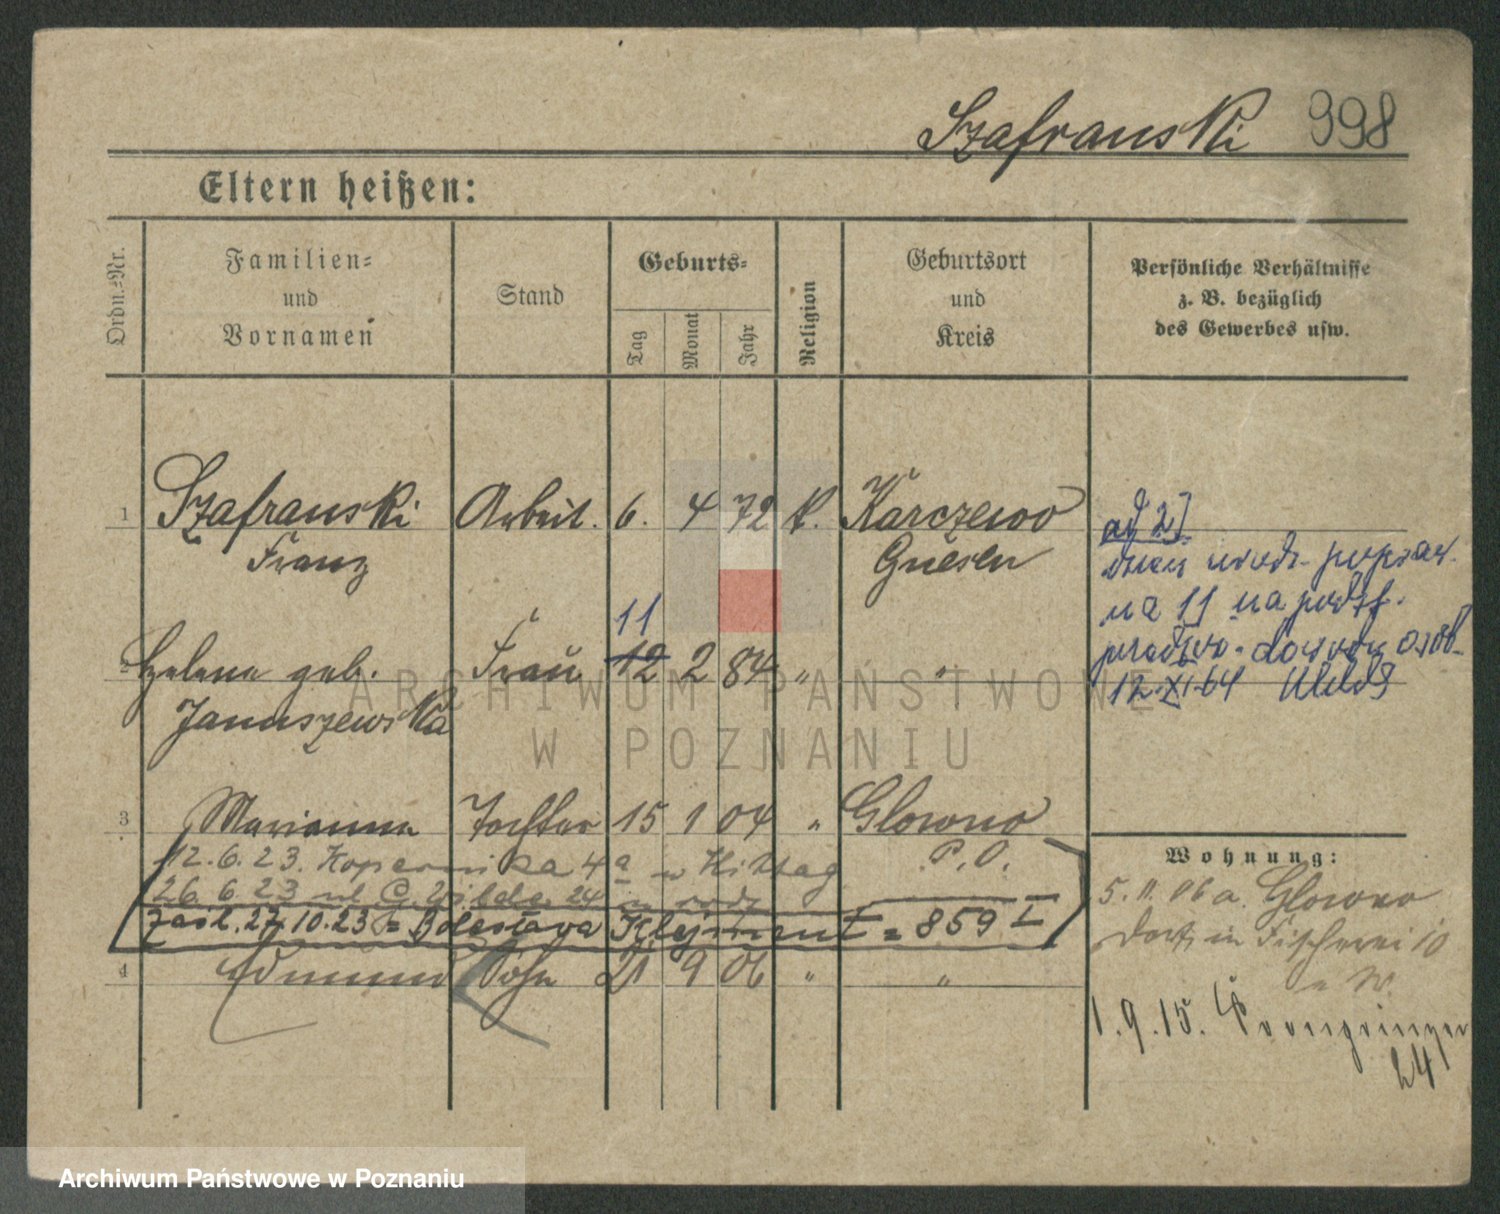 Szafranski 998
Eltern heißen:
Ordn.-Nr.
Familien-
und
Vornamen
Stand
Geburts-
Tag
Monat
Jahr
Religion
Geburtsort
und
Kreis
Persönliche Verhältnisse
z. B. bezüglich
des Gewerbes usw.
1 Szafranski Arbeit. 6. 4 72 k. Karczewo
Franz Gnesen
ad 2]
urodz. popraw.
na 11 na podst.
11
2 Helena geb. Frau 12 2 84 " "
Januszewska
12.XI.64
3 Marianna Tochter 15 1 04 " Glowno
P.O.
12.6.23. Kopernika 4a
26.6.23 ul. G. Wilda 24
zasl. 27.10.23 = Bolesława Klejment = 859 I
4 Edmund Sohn 21 9 06 " "
Wohnung:
5.11.06 a. Glowno
dort, in Fischerei 10
1.9.15. Kronprinzen
24
ARCHIWUM PAŃSTWOWE
W POZNANIU
Archiwum Państwowe w Poznaniu